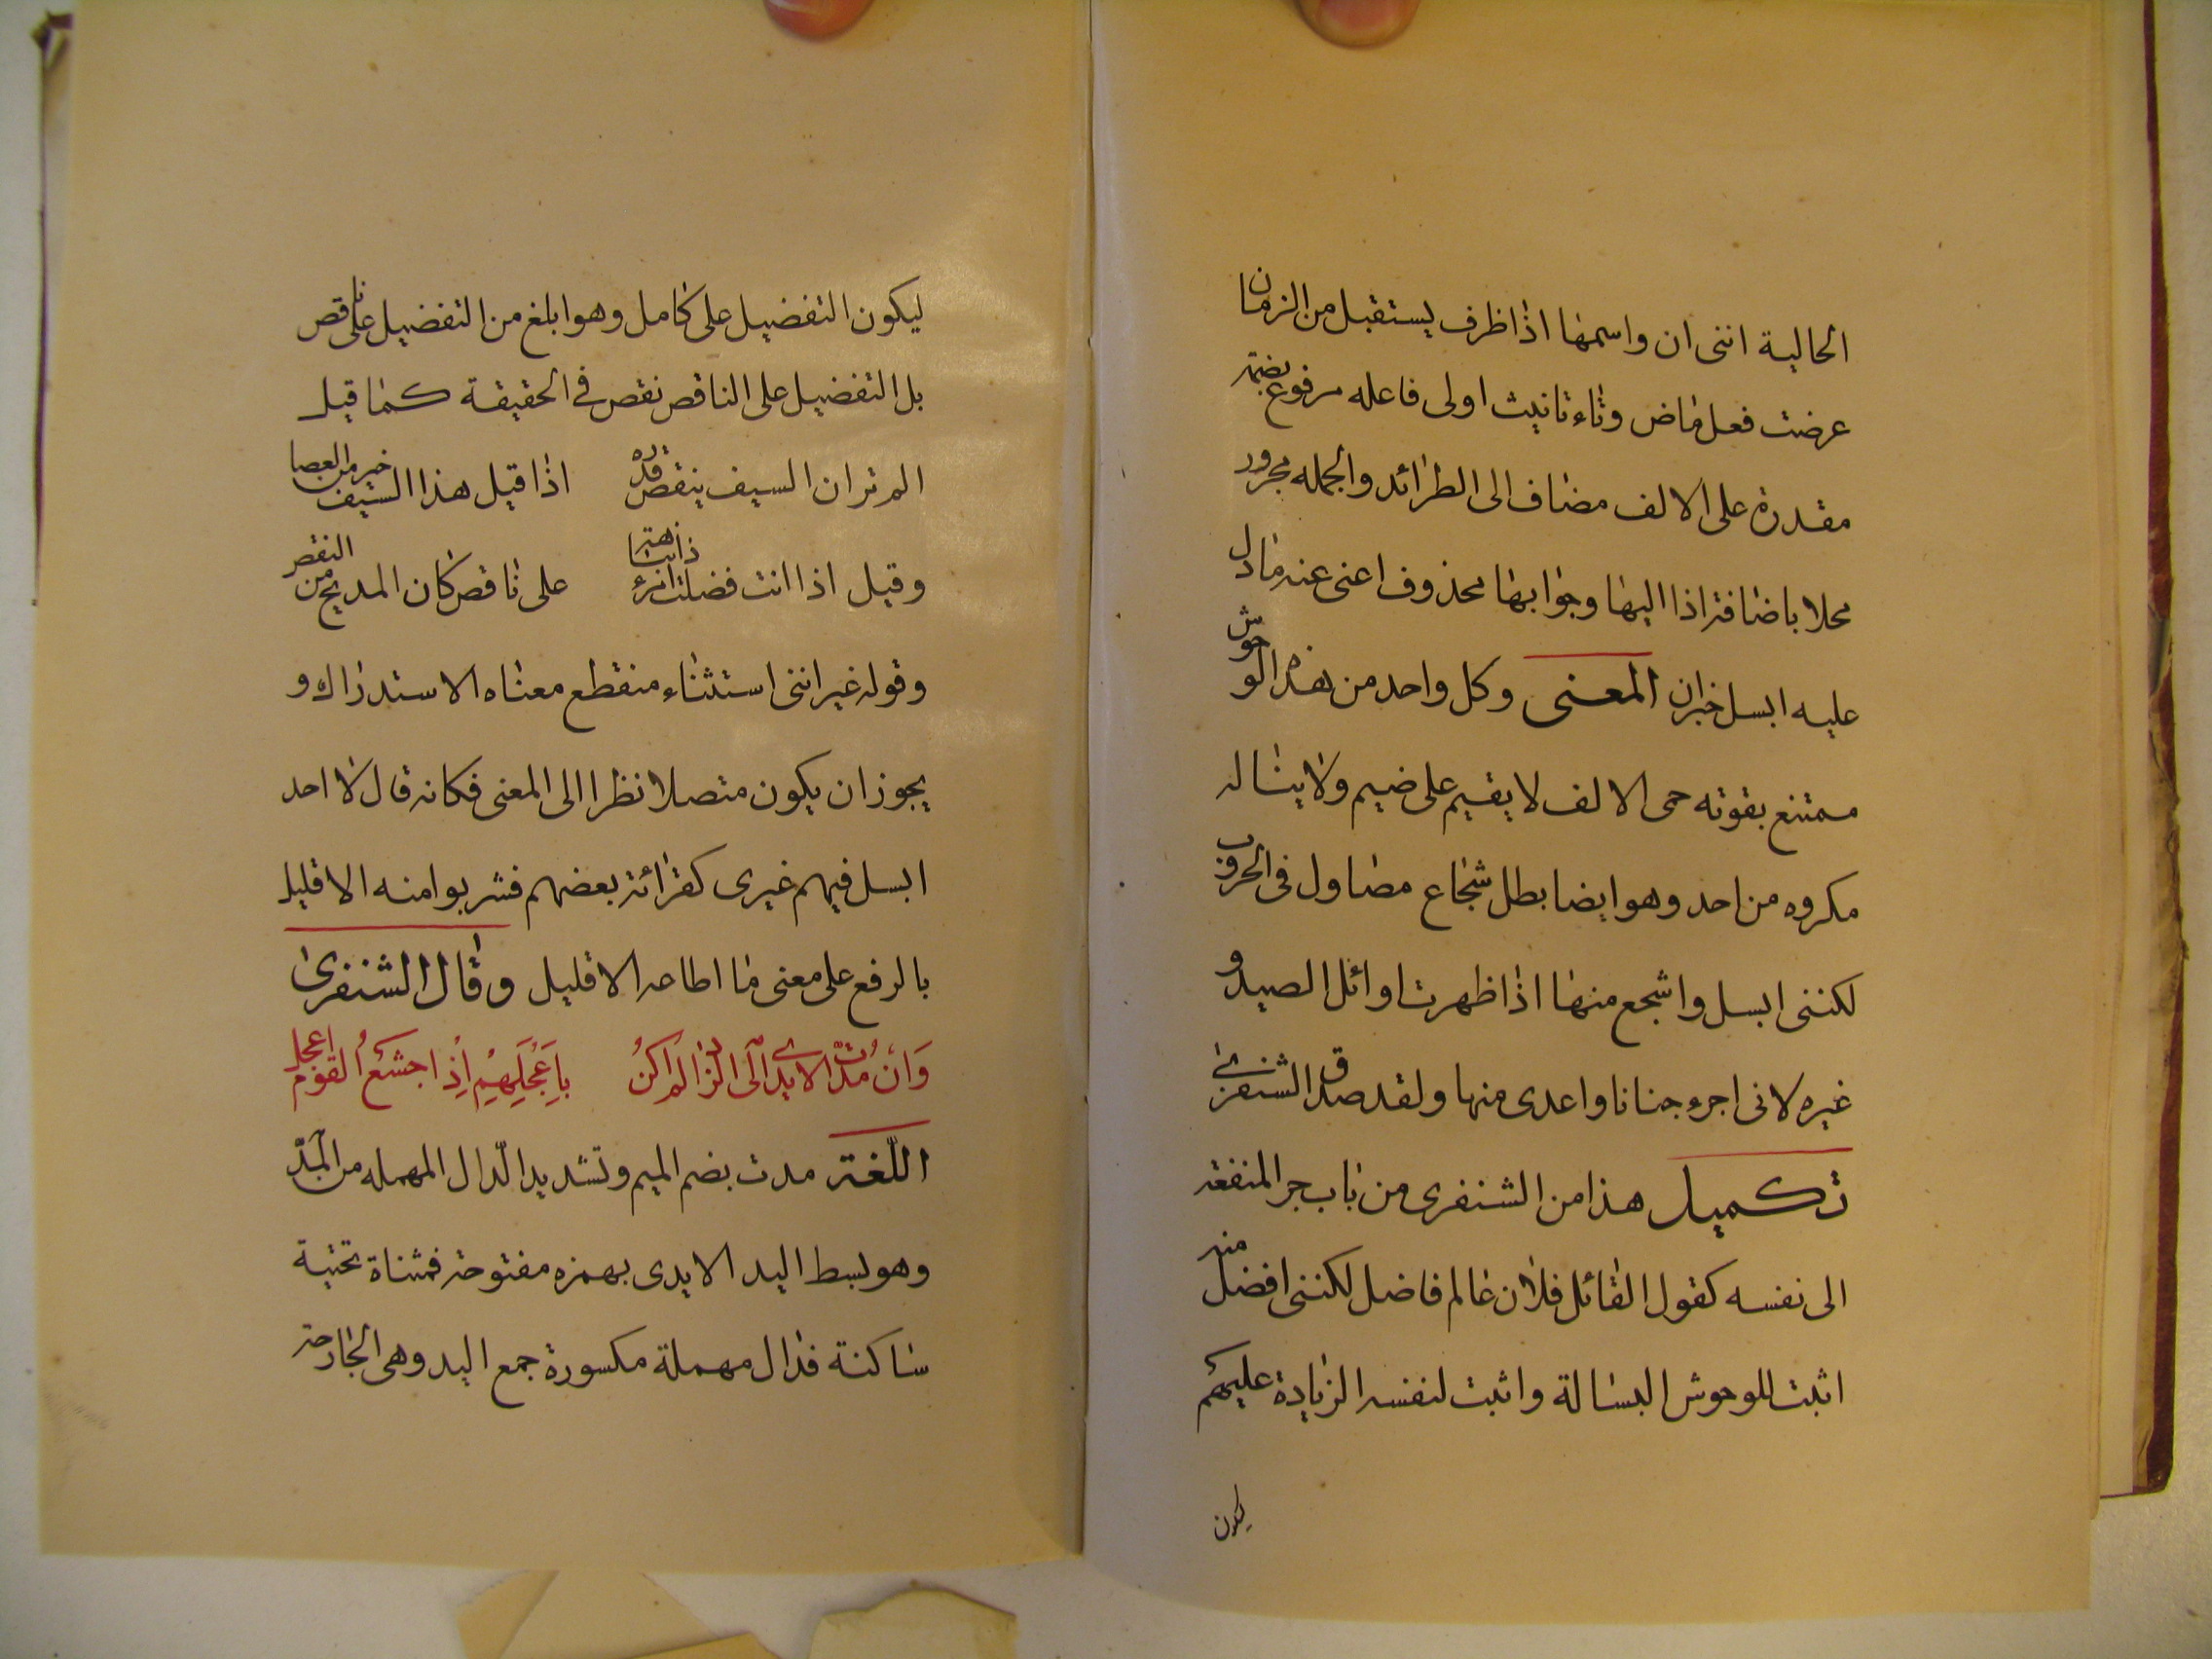 الحالية اننى ان واسمها اذا ظرف يستقبل من الزمان
عرضت فعل ماض وتاء تانيث اولى فاعله مرفوع بضمة
مقدرة على الالف مضاف الى الطرائد والجمله مجرور
محلا باضافة اذا اليها وجوابها محذوف اعنى عنه مادل
عليه ابسل خبران المعنى وكل واحد من هذه الوحوش
ممتنع بقوته حمى الالف لا يقيم على ضيم ولا يناله
مكروه من احد وهو ايضا بطل شجاع مصاول فى الحروب
لكننى ابسل واشجع منها اذا ظهرت اوائل الصيد و
غيره لانى اجرء جنانا واعدى منها ولقد صدق الشنفرى
تكميل هذا من الشنفرى من باب جر المنفعة
الى نفسه كقول القائل فلان عالم فاضل لكننى افضل منه
اثبت للوحوش البسالة واثبت لنفسه الزيادة عليهم
ليكون
ليكون التفضيل على كامل وهو ابلغ من التفضيل على ناقص
بل التفضيل على الناقص نقص فى الحقيقة كما قيل
الم تر ان السيف ينقص قدره اذا قيل هذا السيف خير من العصا
وقيل اذا انت فضلت امرء ذا نباهة على ناقص كان المديح من النقص
وقوله غير اننى استثناء منقطع معناه الاستدراك و
يجوز ان يكون متصلا نظرا الى المعنى فكانه قال لا احد
ابسل فيهم غيرى كقرائة بعضهم فشربوا منه الا قليل
بالرفع على معنى ما اطاعه الا قليل وقال الشنفرى
وَان مُدّت الايدى الَى الزاد لم اكنُ باِعَجَلِهِم اِذ اجشَعُ القوم اعجل
اللّغة مدت بضم الميم وتشديد الدّال المهمله من المَدّ
وهو بسط اليد الايدى بهمزه مفتوحة فمثناة تحتية
ساكنة فدال مهملة مكسورة جمع اليد وهى الجارحة